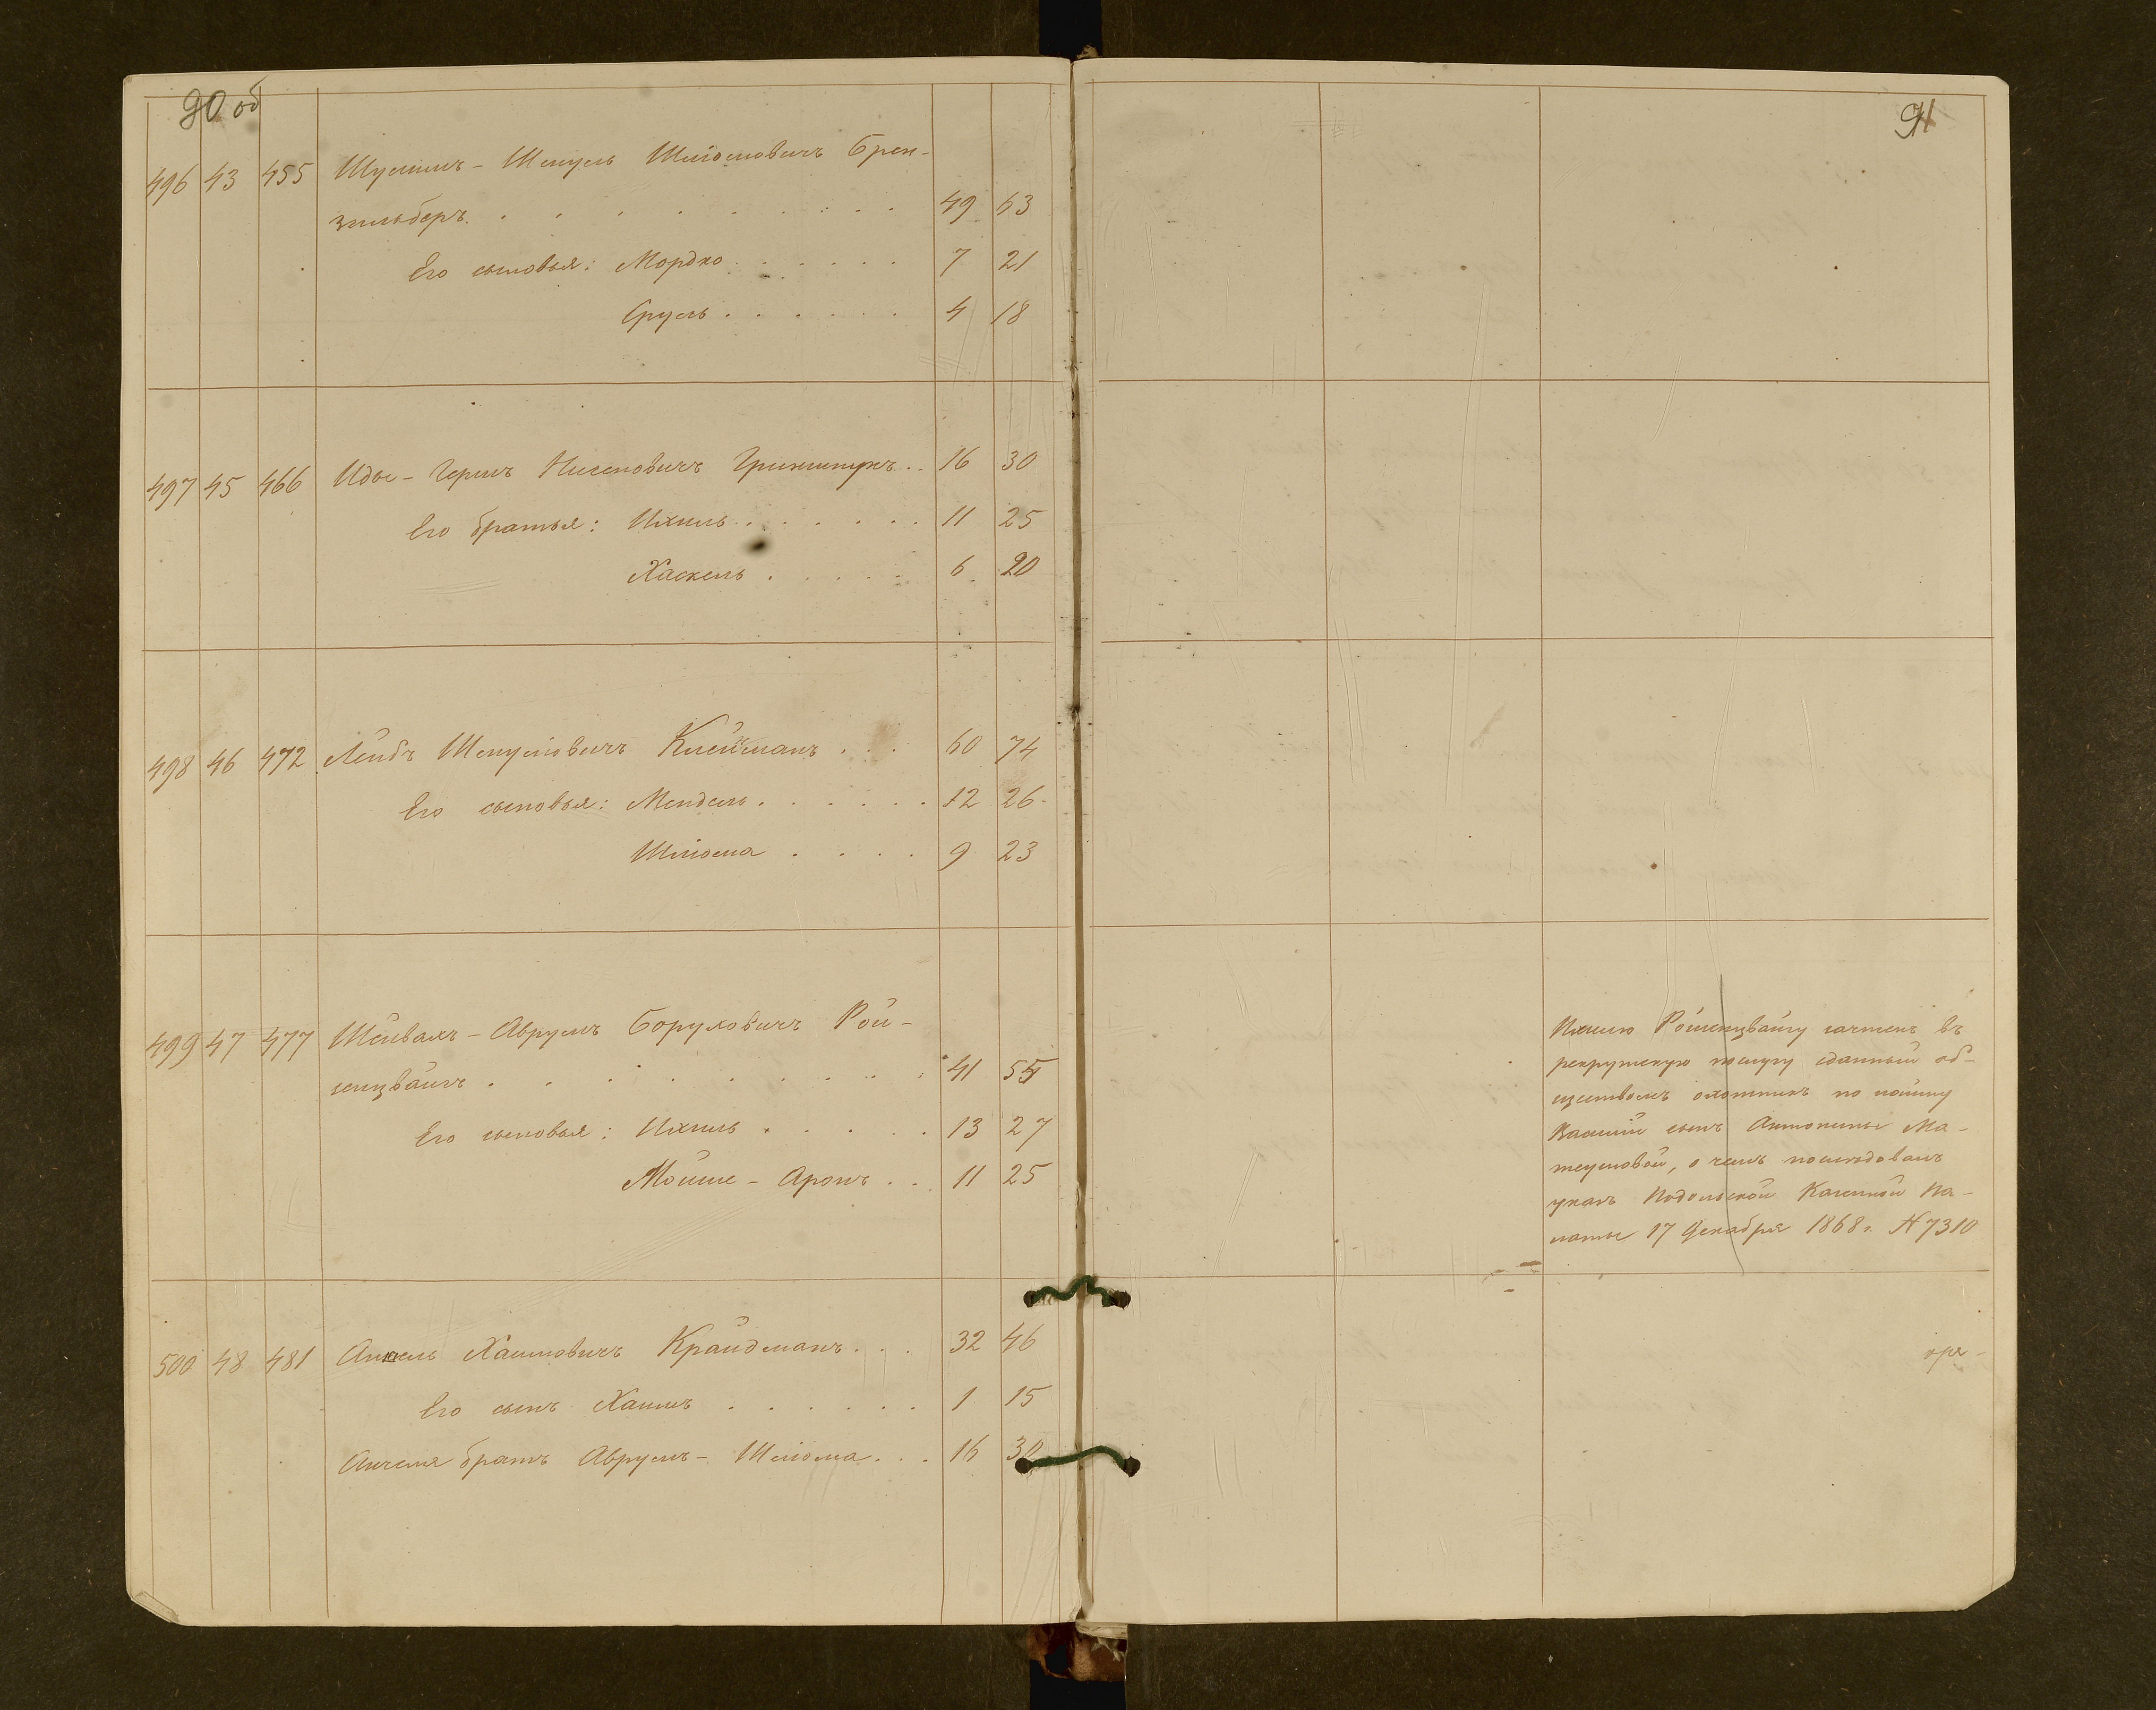 90 об
496 43 455 Шулимъ - Шмуль Шліомовичъ Брен-
зильберъ 49 63
Его сыновья: Мордко 7 21
Сруль 4 18
497 45 466 Идье - Гершъ Нисеновичъ 16 30
Его братья: Ихиль 11 25
Хаскель 6 20
498 46 472 Лейбъ Шмулиовичъ Клейманъ 60 74
Его сыновья: Мендель 12 26
Шліома 9 23
499 47 477 Шейвахъ - Аврумъ Боруховичъ Рой-
зенцвайгъ 41 55
Его сыновья: Ихиль 13 27
Мойше - Аронъ 11 25
500 48 481 Анчель Хаимовичъ Крайдманъ 32 46
Его сынъ Хаимъ 1 15
Анчеля братъ Аврумъ - Шліома 16 30
91
Ихилю Ройзенцвайгу зачтенъ въ
рекрутскую послугу сданный об-
ществомъ охотникъ по найму
сынъ Антонины Ма-
о чемъ последовалъ
указъ Подольской Казенной Па-
латы 17 Декабря 1868 г. N 7310